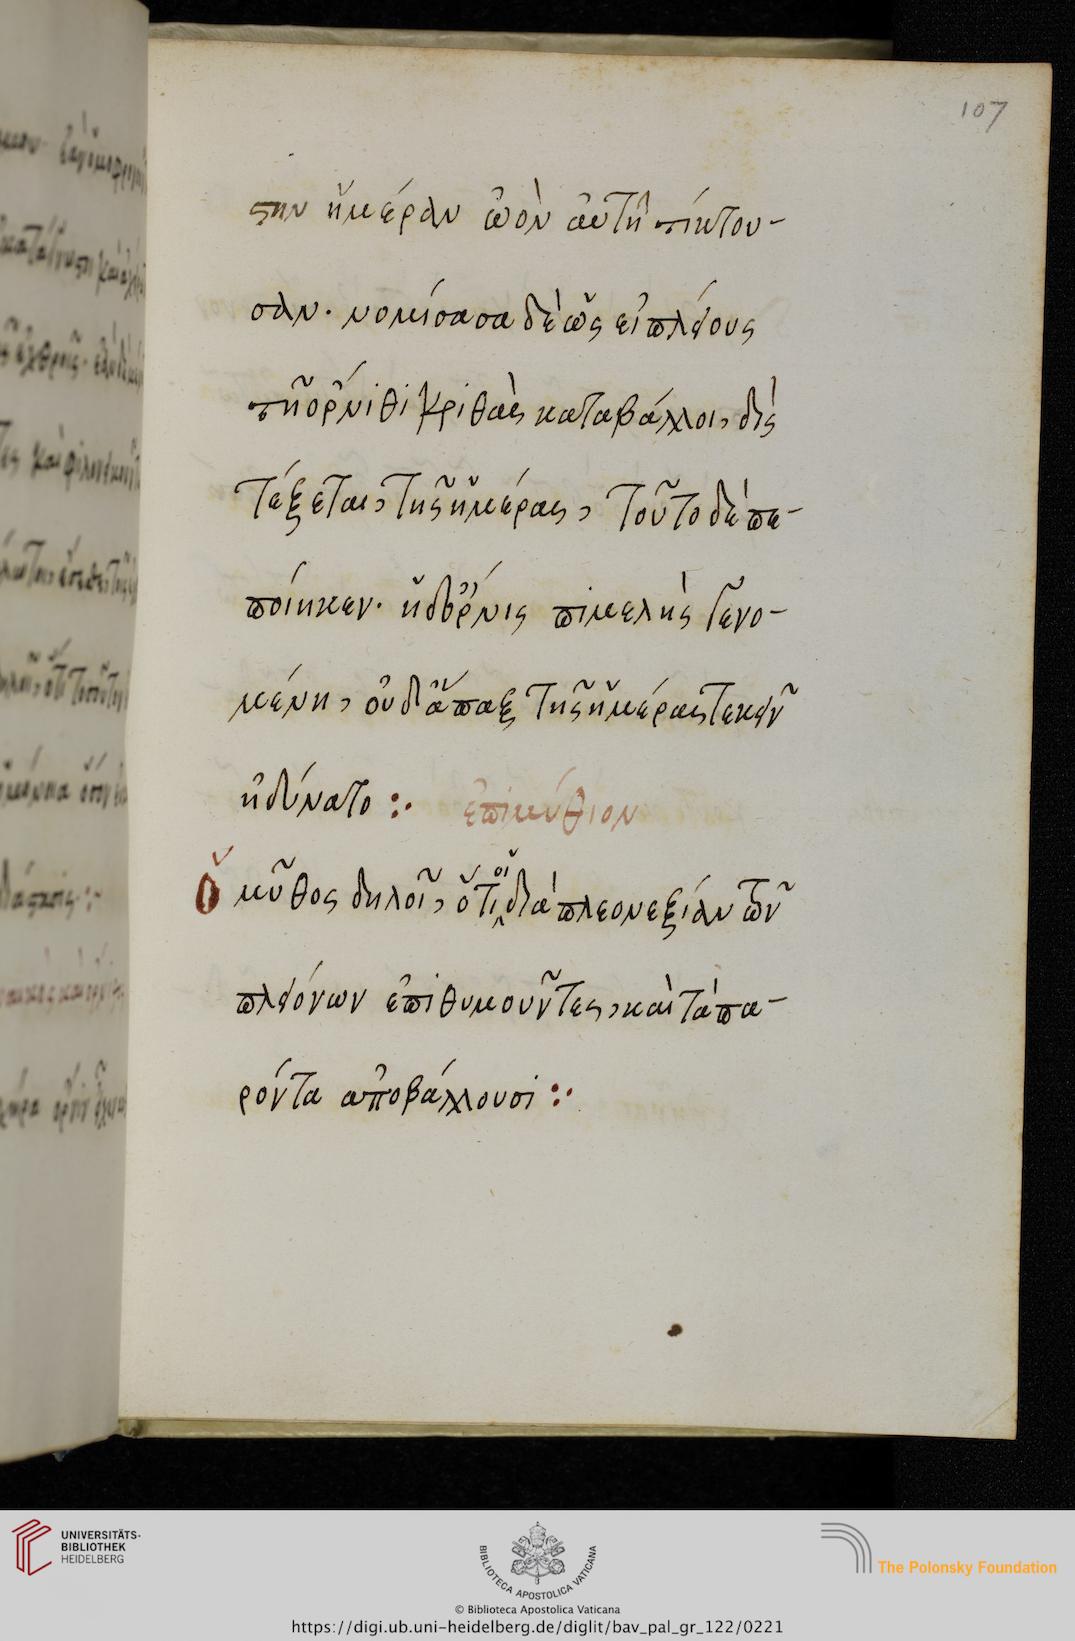 107
στην ἡμέραν ὠὸν αὐτῇ τίκτου-
σαν. νομίσασα δὲ ὡς εἰ πλείους
τῇ ὄρνιθι κριθὰς καταβάλλοι, δὶς
τέξεται, τῆς ἡμέρας, τοῦτο δὲ πε-
ποίηκεν. ἡ δ' ὄρνις πιμελὴς γενο-
μένη, οὐδ' ἅπαξ τῆς ἡμέρας τεκεῖν
ἠδύνατο :·
ἐπιμύθιον
Ὁ μῦθος δηλοῖ, ὅτι οἱ διὰ πλεονεξίαν τῶν
πλειόνων ἐπιθυμοῦντες, καὶ τὰ πα-
ρόντα ἀποβάλλουσι :·
UNIVERSITÄTS-
BIBLIOTHEK
HEIDELBERG
BIBLIOTECA APOSTOLICA VATICANA
The Polonsky Foundation
© Biblioteca Apostolica Vaticana
https://digi.ub.uni-heidelberg.de/diglit/bav_pal_gr_122/0221